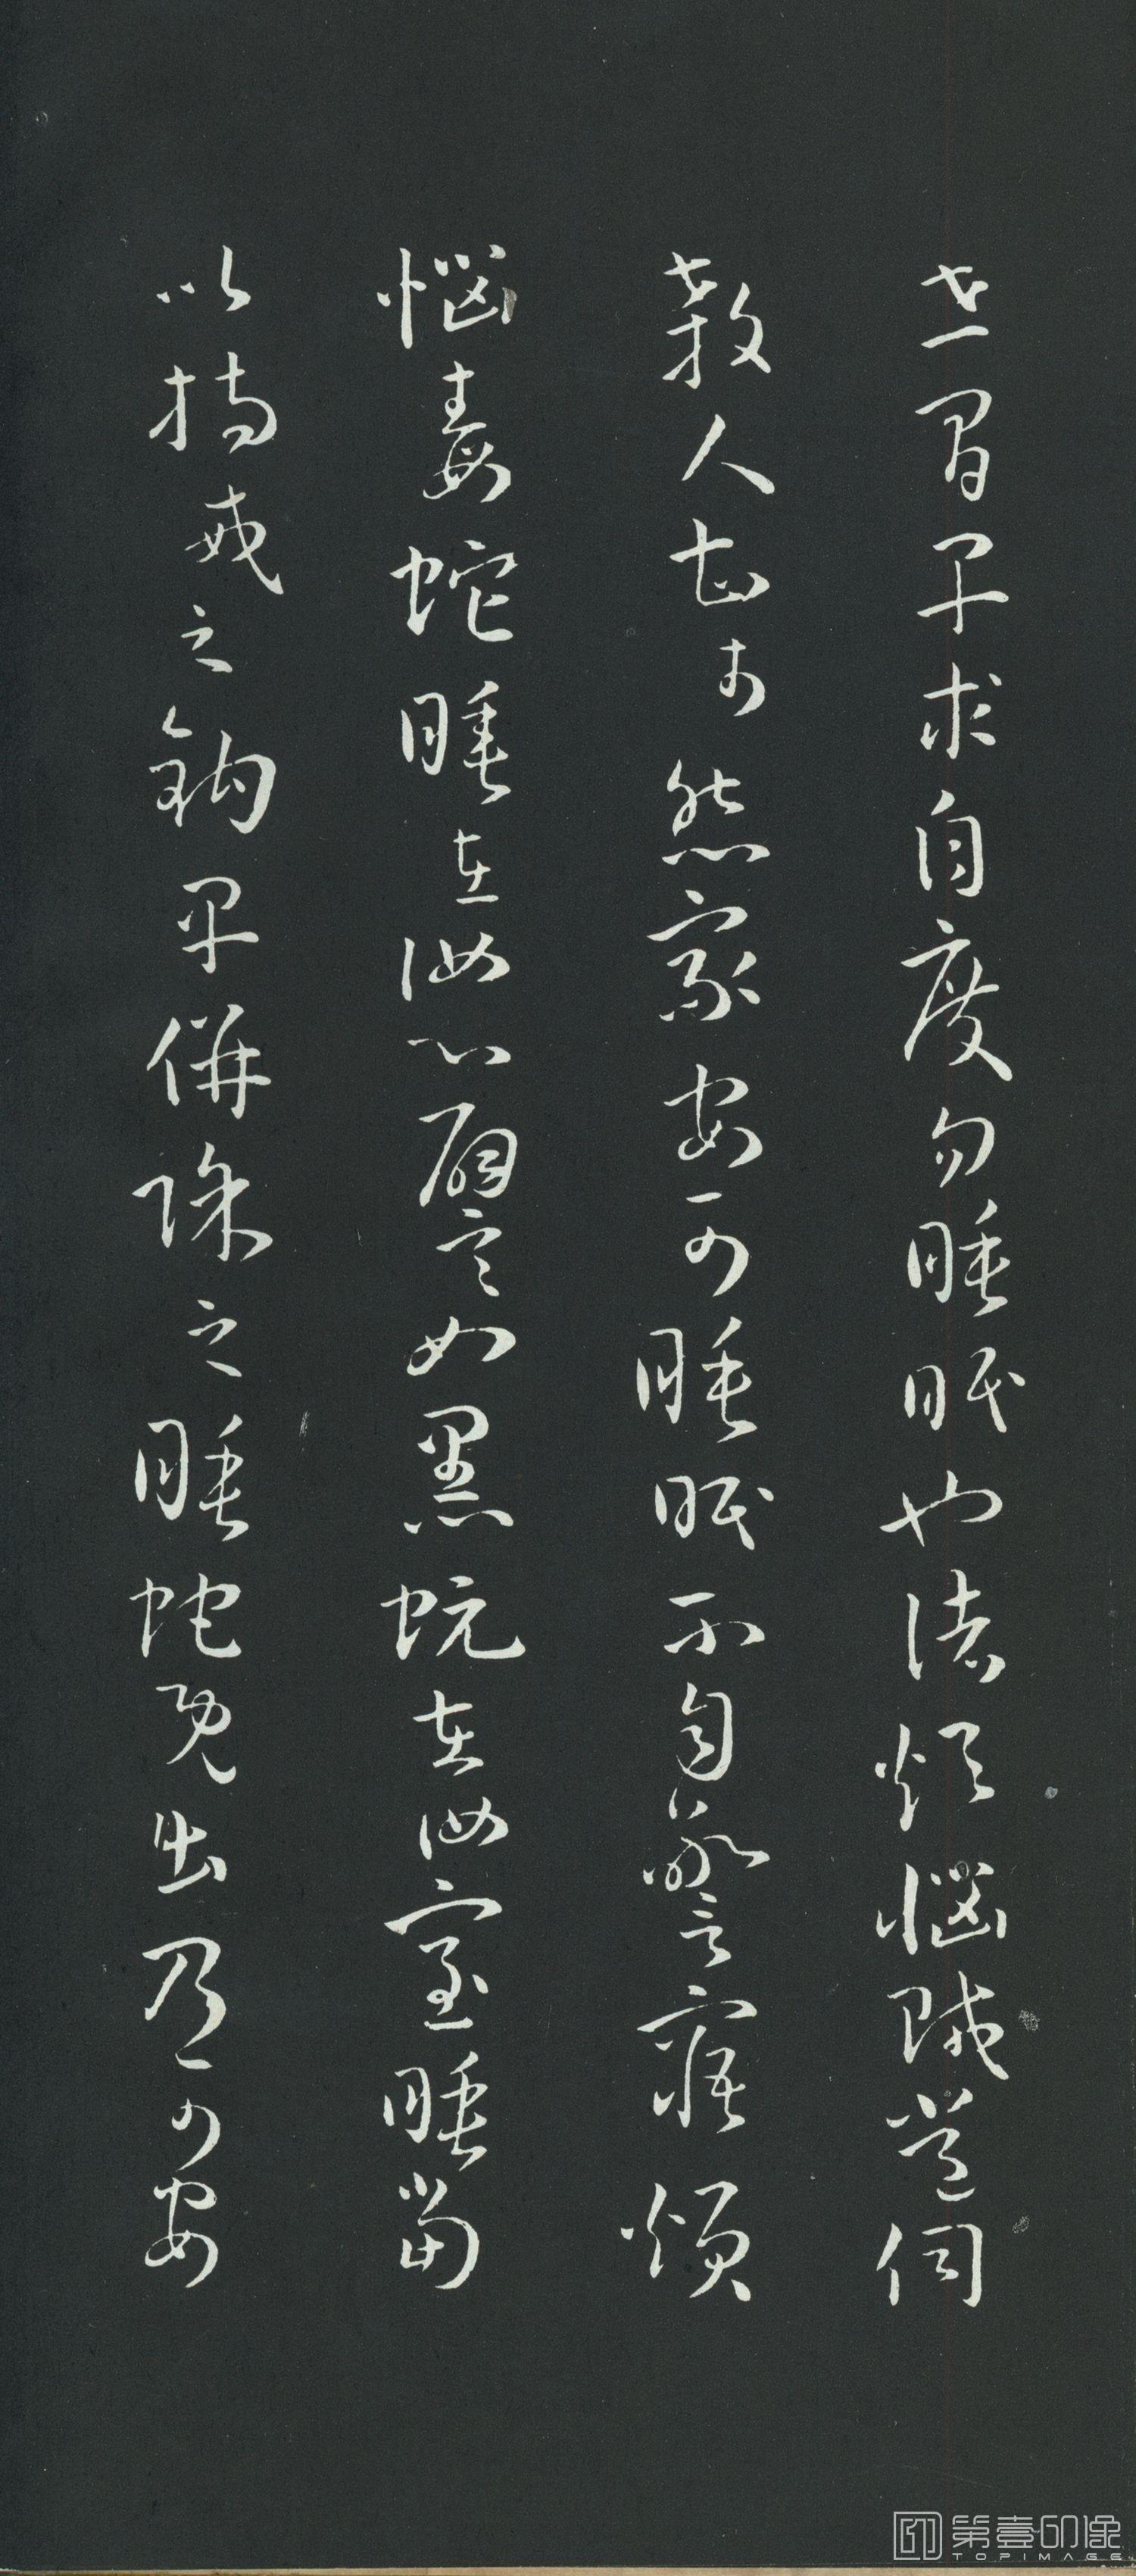 世間早求自度勿睡眠也諸煩惱賊常伺
殺人甚於怨家安可睡眠不自警寤煩
惱毒蛇睡在汝心譬如黑蚖在汝室睡當
以持戒之鉤早併除之睡蛇既出乃可安
第壹印像
TOPIMAGE